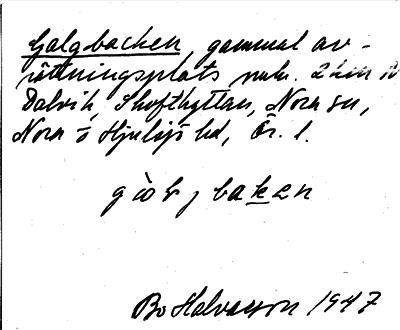 Galgbacken, gammal av-
rättningsplats
Dalvik, Skofthyttan, Nora sn,
Nora o Hjulsjö hd, Ör. l.
baken
Bo Halvarson 1947